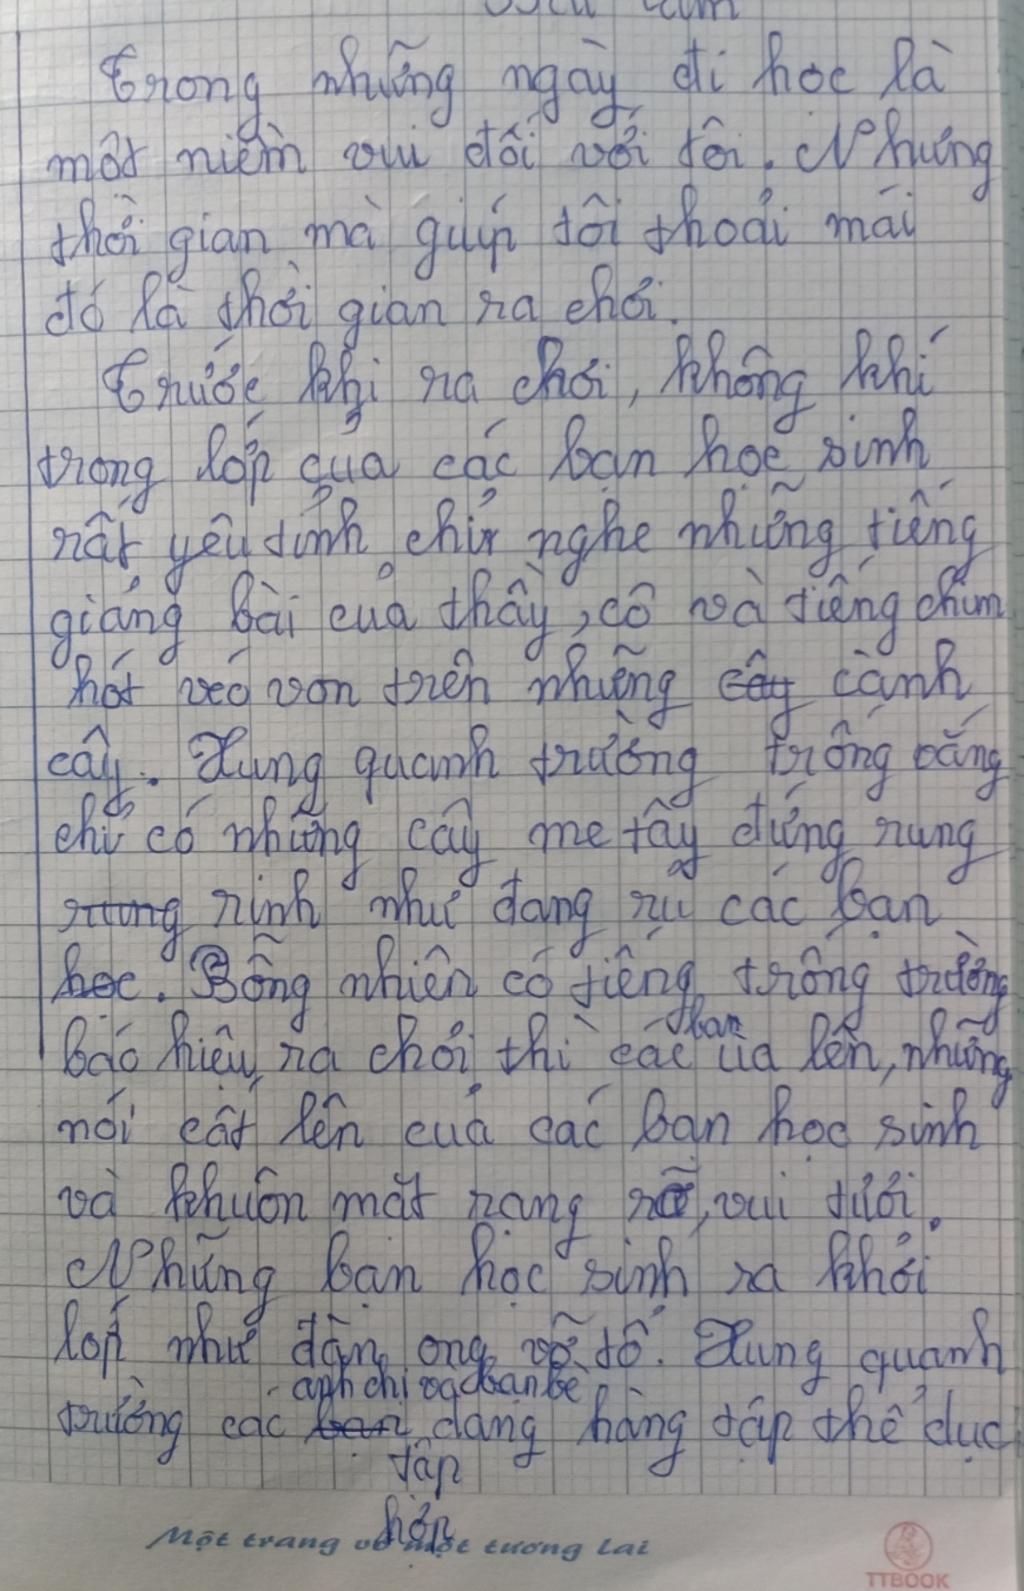 Trong những ngày đi học là
một niềm vui đối với tôi. Nhưng
thời gian mà giúp tôi thoải mái
đó là thời gian ra chơi.
Trước khi ra chơi, không khí
trong lớp của các bạn học sinh
rất yêu tỉnh chỉ nghe những tiếng
giảng bài của thầy, cô và tiếng chim
hót véo von trên những cây cành
cây. Xung quanh trường trống vắng
chỉ có những cây me tây đứng rung
rung rinh như đang rủ các bạn
học. Bỗng nhiên có tiếng trống trường
báo hiệu ra chơi thì các bạn ùa lên, những
nói cất lên của các bạn học sinh
và khuôn mặt rạng rỡ, vui tươi.
Những bạn học sinh ra khỏi
lớp như đàn ong vỡ tổ. Xung quanh
anh chị và bạn bè
trường các bạn đang hàng tập thể dục
tập
hợp
Một trang vở một tương lai
TTBOOK